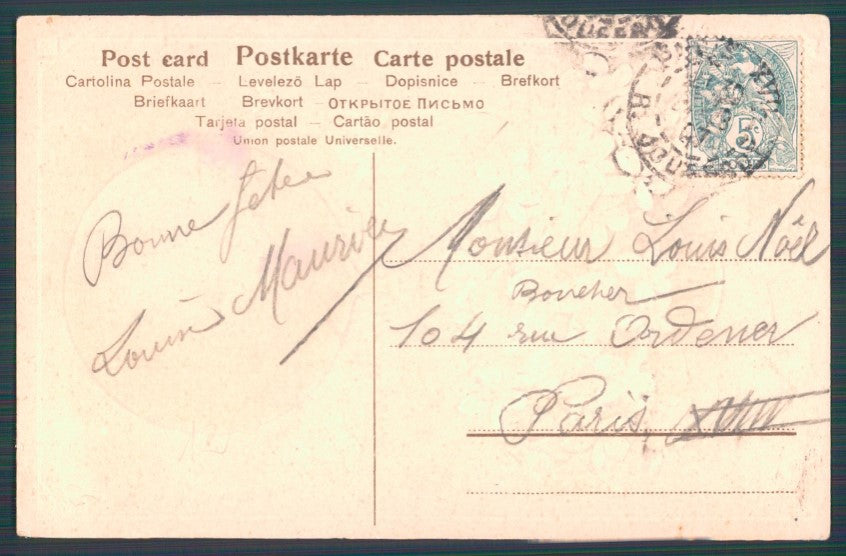 Post card Postkarte Carte postale
Cartolina Postale — Levelező Lap — Dopisnice — Brefkort
Briefkaart — Brevkort — ОТКРЫТОЕ ПИСЬМО
Tarjeta postal — Cartão postal
Union postale Universelle.
5c
Bonne fête
Louise Maurice
Monsieur Louis Noël
Boucher
104 rue Ordener
Paris, XVIII